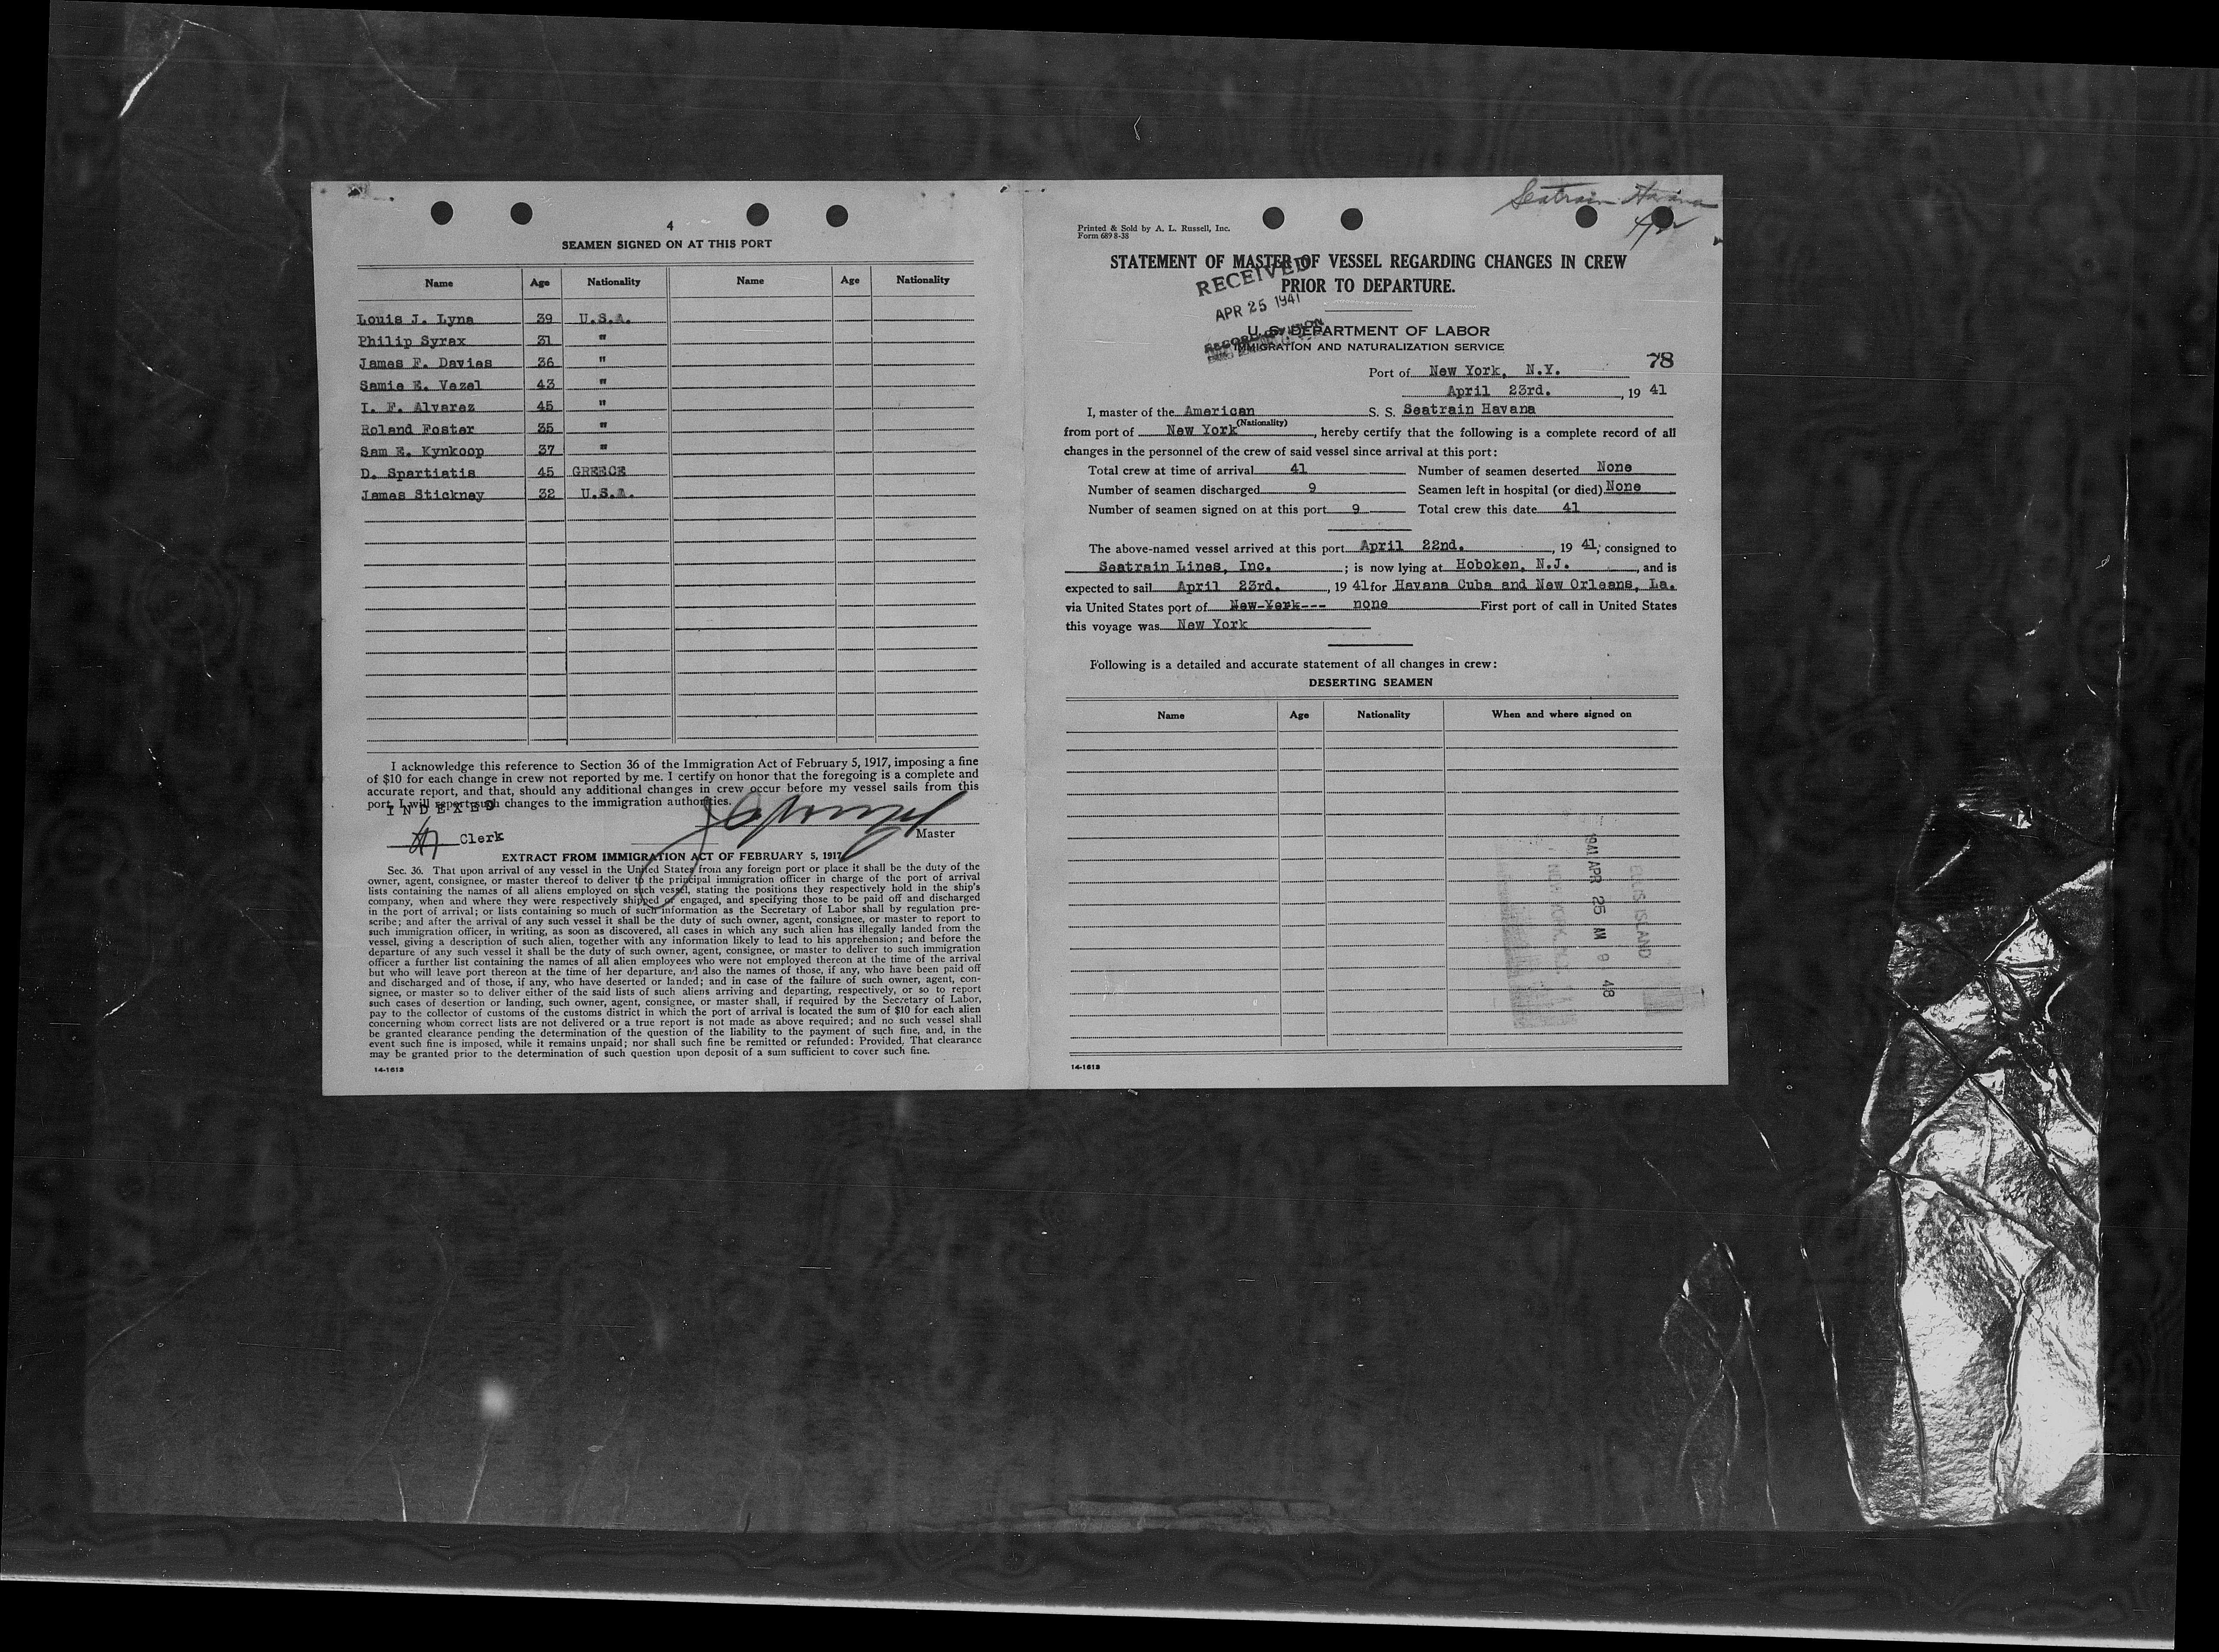 4
SEAMEN SIGNED ON AT THIS PORT
Name Age Nationality Name Age Nationality
Louis J. Lyna 39 U.S.A.
Philip Syrax 31 "
James F. Davies 36 "
Samie E. Vezel 43 "
I. F. Alvarez 45 "
Roland Foster 35 "
Sam E. Kynkoop 37 "
D. Spartiatis 45 GREECE
James Stickney 32 U.S.A.
I acknowledge this reference to Section 36 of the Immigration Act of February 5, 1917, imposing a fine
of $10 for each change in crew not reported by me. I certify on honor that the foregoing is a complete and
accurate report, and that, should any additional changes in crew occur before my vessel sails from this
port, I will report such changes to the immigration authorities.
INDEXED
Clerk
Master
EXTRACT FROM IMMIGRATION ACT OF FEBRUARY 5, 1917
Sec. 36. That upon arrival of any vessel in the United States from any foreign port or place it shall be the duty of the
owner, agent, consignee, or master thereof to deliver to the principal immigration officer in charge of the port of arrival
lists containing the names of all aliens employed on such vessel, stating the positions they respectively hold in the ship's
company, when and where they were respectively shipped or engaged, and specifying those to be paid off and discharged
in the port of arrival; or lists containing so much of such information as the Secretary of Labor shall by regulation pre-
scribe; and after the arrival of any such vessel it shall be the duty of such owner, agent, consignee, or master to report to
such immigration officer, in writing, as soon as discovered, all cases in which any such alien has illegally landed from the
vessel, giving a description of such alien, together with any information likely to lead to his apprehension; and before the
departure of any such vessel it shall be the duty of such owner, agent, consignee, or master to deliver to such immigration
officer a further list containing the names of all alien employees who were not employed thereon at the time of the arrival
but who will leave port thereon at the time of her departure, and also the names of those, if any, who have been paid off
and discharged and of those, if any, who have deserted or landed; and in case of the failure of such owner, agent, con-
signee, or master so to deliver either of the said lists of such aliens arriving and departing, respectively, or so to report
such cases of desertion or landing, such owner, agent, consignee, or master shall, if required by the Secretary of Labor,
pay to the collector of customs of the customs district in which the port of arrival is located the sum of $10 for each alien
concerning whom correct lists are not delivered or a true report is not made as above required; and no such vessel shall
be granted clearance pending the determination of the question of the liability to the payment of such fine, and, in the
event such fine is imposed, while it remains unpaid; nor shall such fine be remitted or refunded: Provided, That clearance
may be granted prior to the determination of such question upon deposit of a sum sufficient to cover such fine.
14-1613
Seatrain Havana
Printed & Sold by A. L. Russell, Inc.
Form 689 8-38
STATEMENT OF MASTER OF VESSEL REGARDING CHANGES IN CREW
PRIOR TO DEPARTURE.
RECEIVED
APR 25 1941
U. S. DEPARTMENT OF LABOR
IMMIGRATION AND NATURALIZATION SERVICE
78
Port of New York, N.Y.
April 23rd. , 19 41
I, master of the American S. S. Seatrain Havana
(Nationality)
from port of New York , hereby certify that the following is a complete record of all
changes in the personnel of the crew of said vessel since arrival at this port:
Total crew at time of arrival 41 Number of seamen deserted None
Number of seamen discharged 9 Seamen left in hospital (or died) None
Number of seamen signed on at this port 9 Total crew this date 41
The above-named vessel arrived at this port April 22nd. , 19 41, consigned to
Seatrain Lines, Inc. ; is now lying at Hoboken, N.J. , and is
expected to sail April 23rd. , 19 41 for Havana Cuba and New Orleans, La.
via United States port of New York--- none First port of call in United States
this voyage was New York
Following is a detailed and accurate statement of all changes in crew:
DESERTING SEAMEN
Name Age Nationality When and where signed on
1941 APR 25 AM 9 48
ELLIS ISLAND
NEW YORK, N.Y.
14-1613